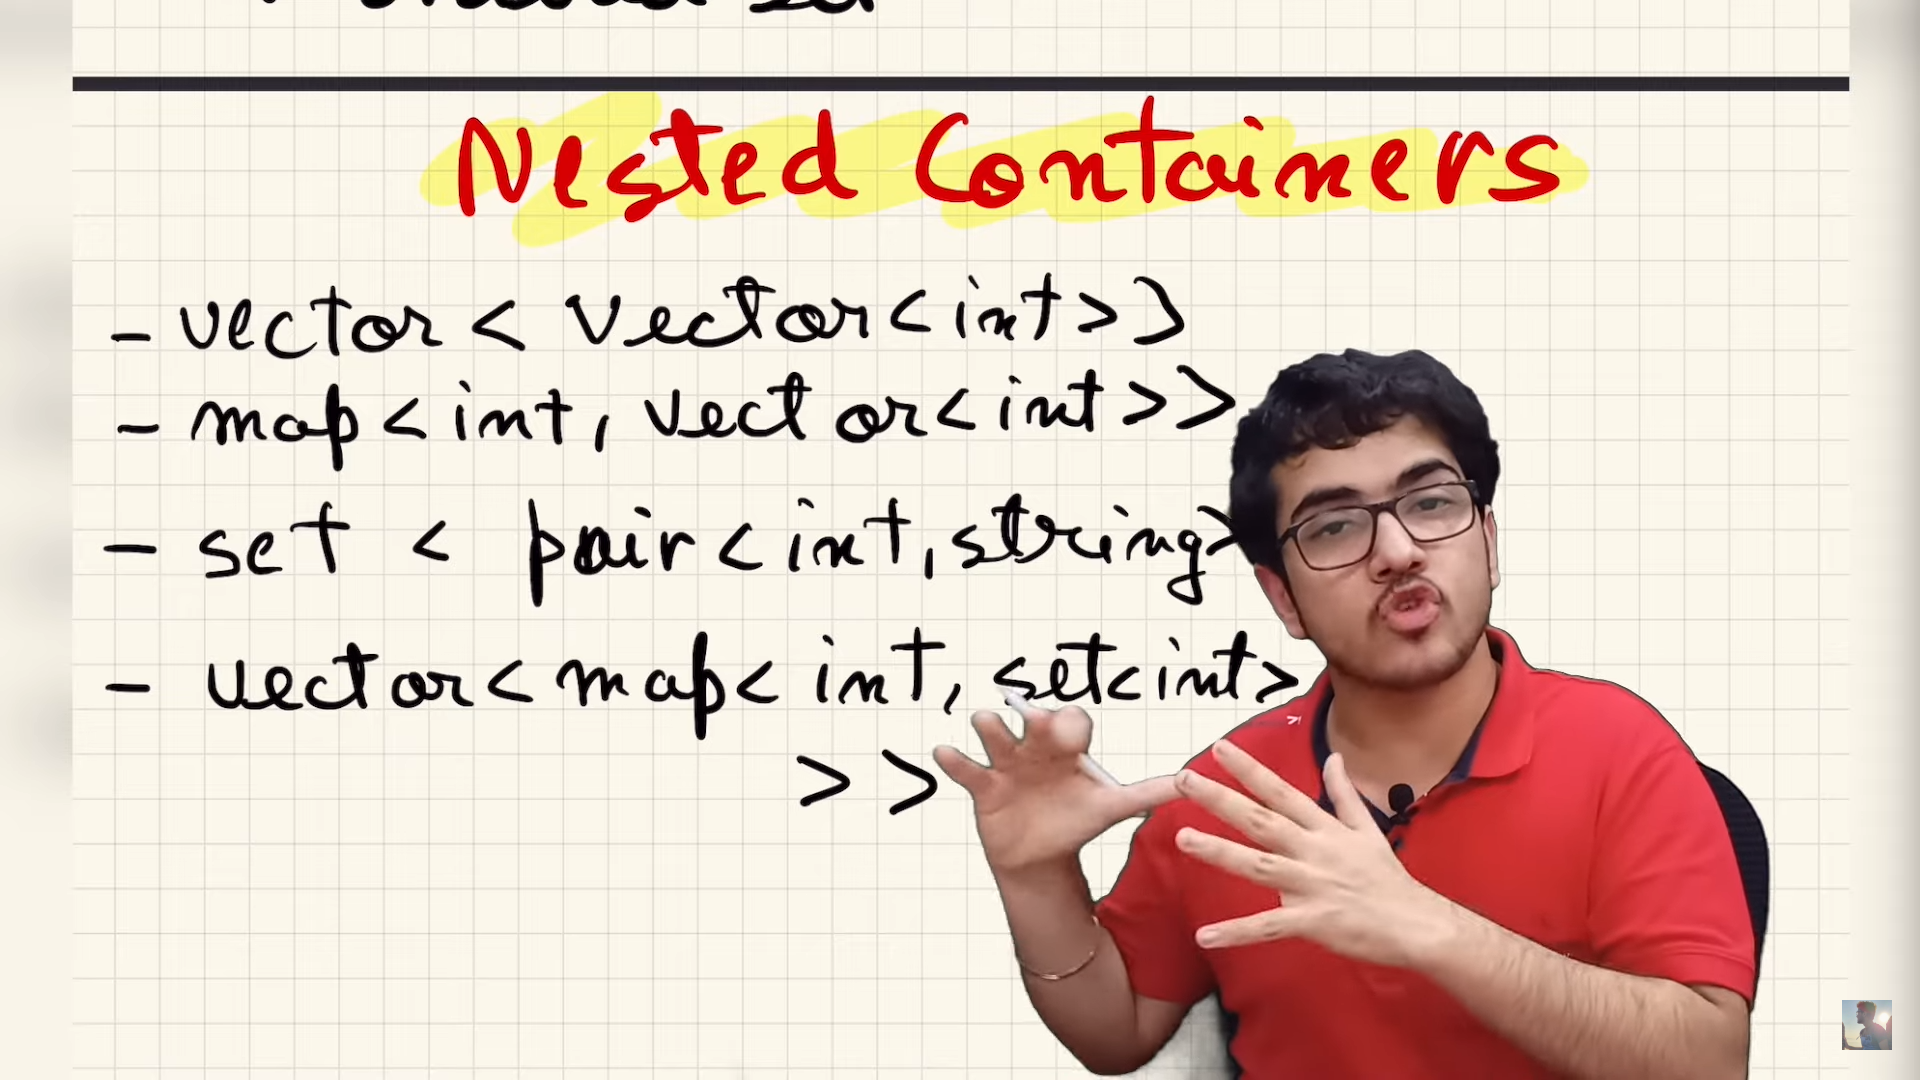 Nested Containers
- vector < vector<int>>
- map<int, vector<int>>
- set < pair<int, string>
- vector<map<int, set<int>
>>